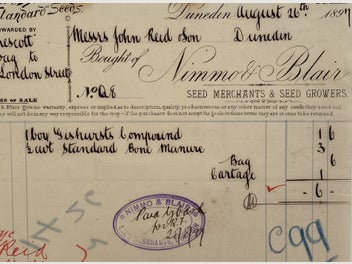 Standard Seeds.
Dunedin August 26th 189
FORWARDED BY
Prescott
Messrs John Reid & Son Dunedin
Bag to
London Street
Bought of
Nimmo & Blair
No Q8
SEED MERCHANTS & SEED GROWERS.
OF SALE
& Blair give no warranty, express or implied as to description, quality, productiveness, or any other matter of any seeds they send out,
they will not in any way be responsible for the crop. If the purchaser does not accept the goods on these terms they are at once to be returned.
1 box Gishursts Compound 1 6
1/2 cwt Standard Bone Manure 3
Bag 6
Cartage 1
- 6 -
NIMMO & BLAIR
Paid
Reid
C99